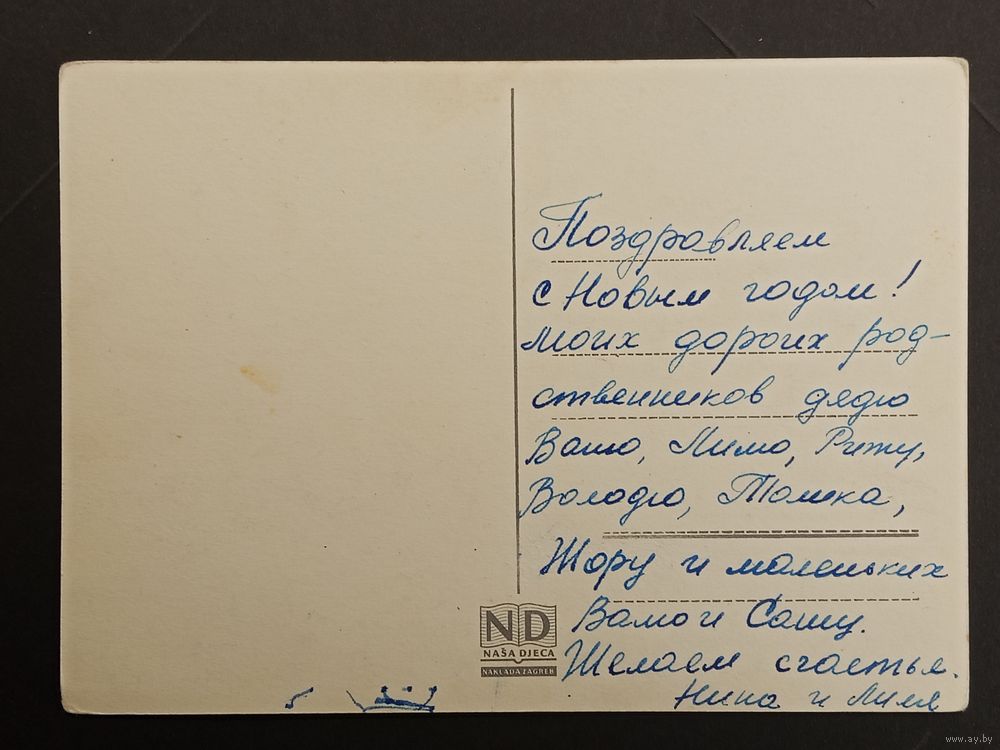 Поздравляем
с Новым годом!
моих дорогих род-
ственников дядю
Ваню, Лиму, Риту,
Володю, Толика,
Жору и маленьких
Ваню и Сашу.
Желаем счастья.
Нина и Лиля
ND
NAŠA DJECA
NAKLADA ZAGREB
www.ay.by